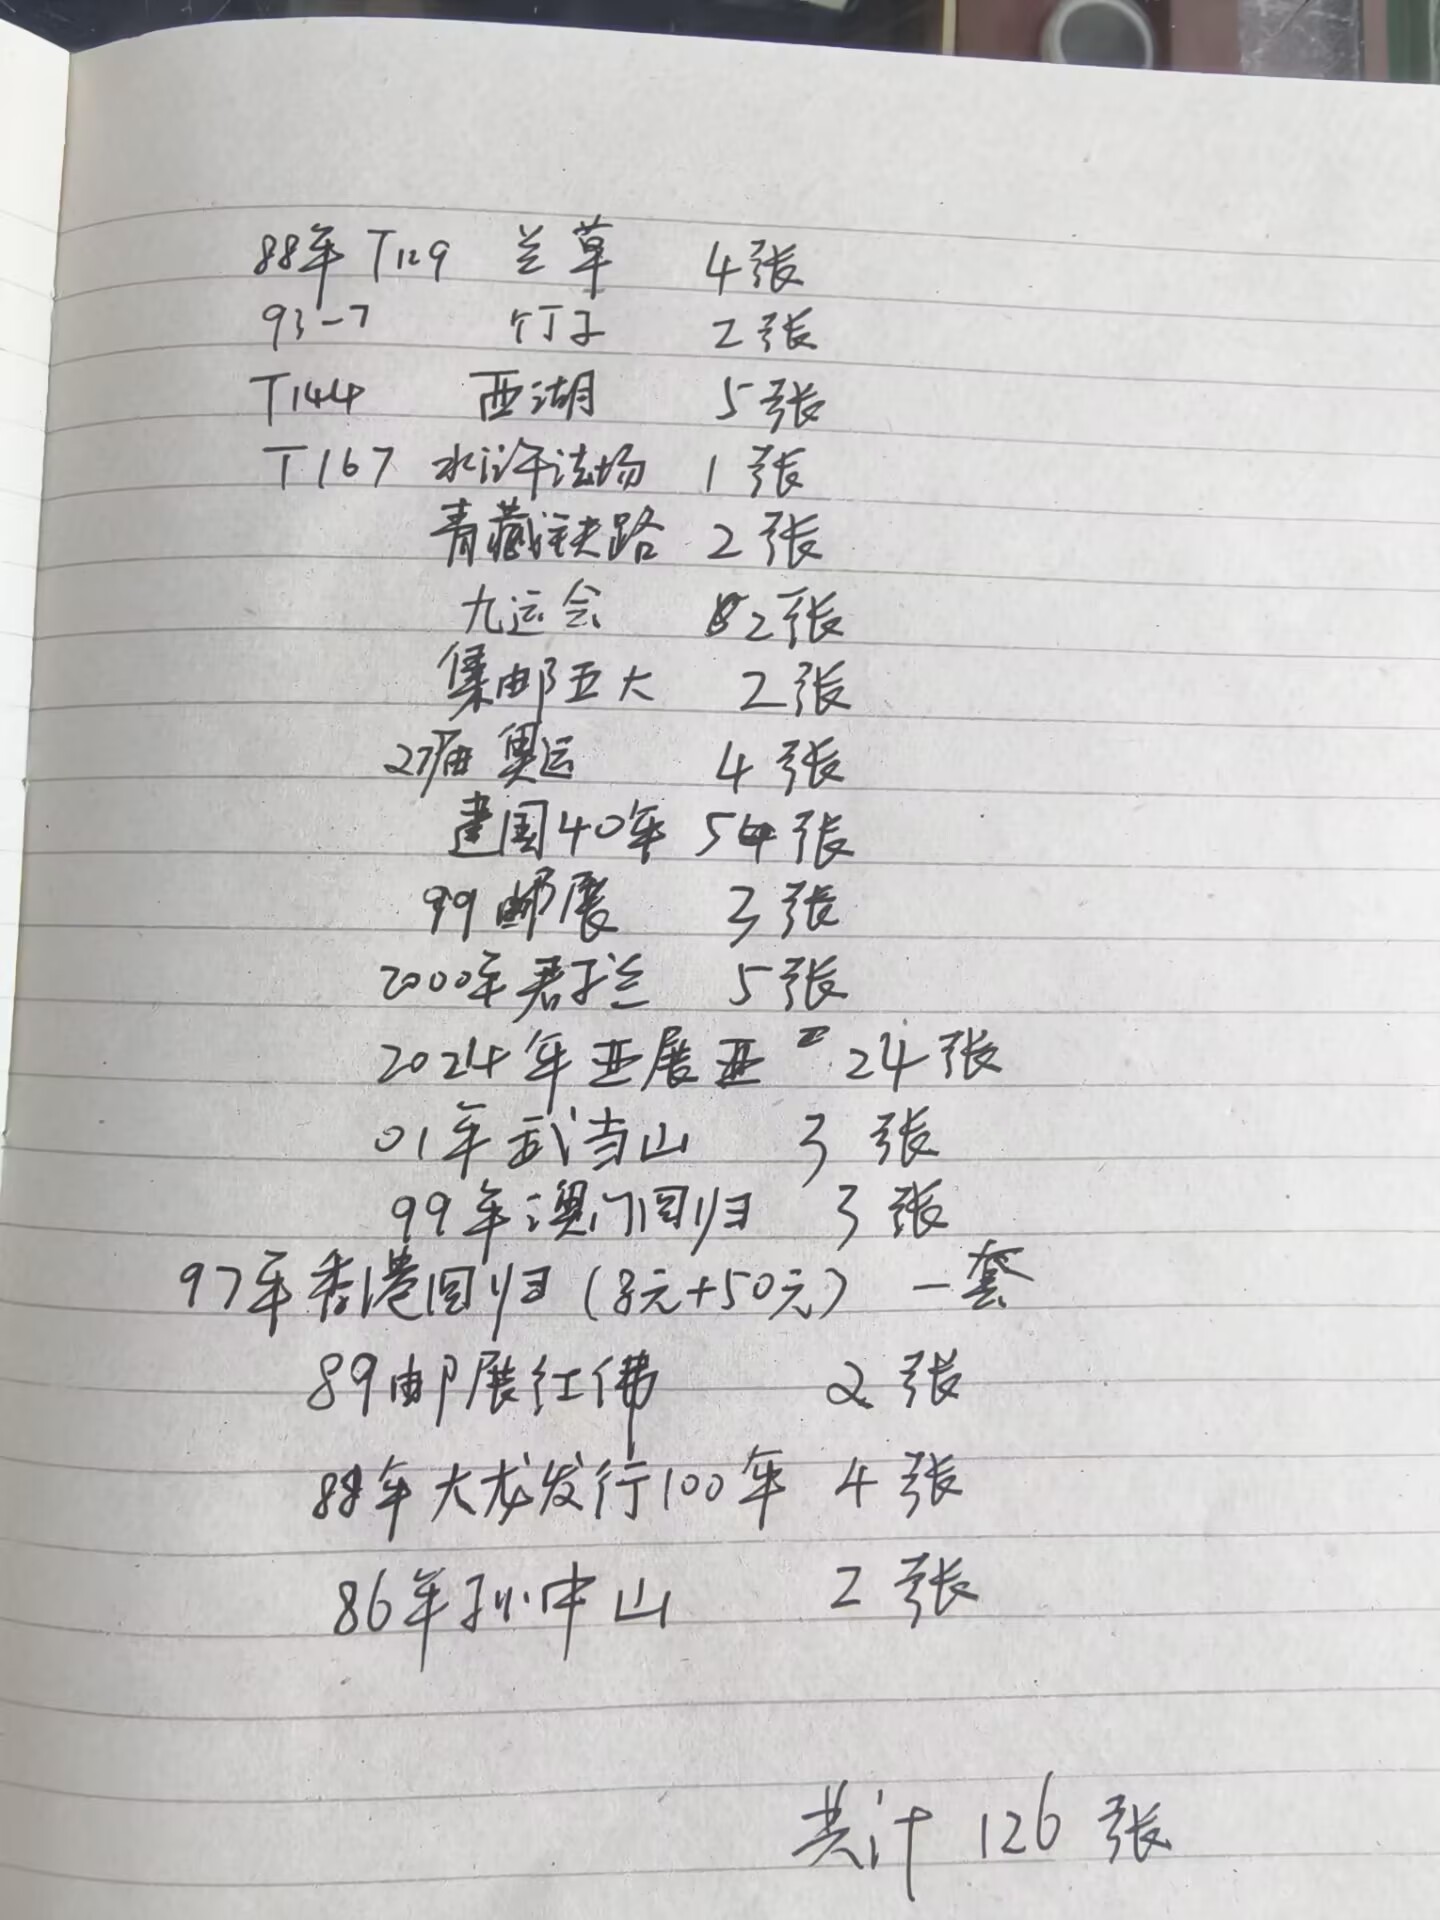 88年 T129 兰草 4张
93-7 竹子 2张
T144 西湖 5张
T167 水浒法场 1张
青藏铁路 2张
九运会 2张
集邮五大 2张
27届奥运 4张
建国40年 54张
99邮展 3张
2000年君子兰 5张
2024年亚展亚 24张
01年武当山 3张
99年澳门回归 3张
97年香港回归(8元+50元) 一套
89邮展红佛 2张
88年大龙发行100年 4张
86年孙中山 2张
共计 126 张